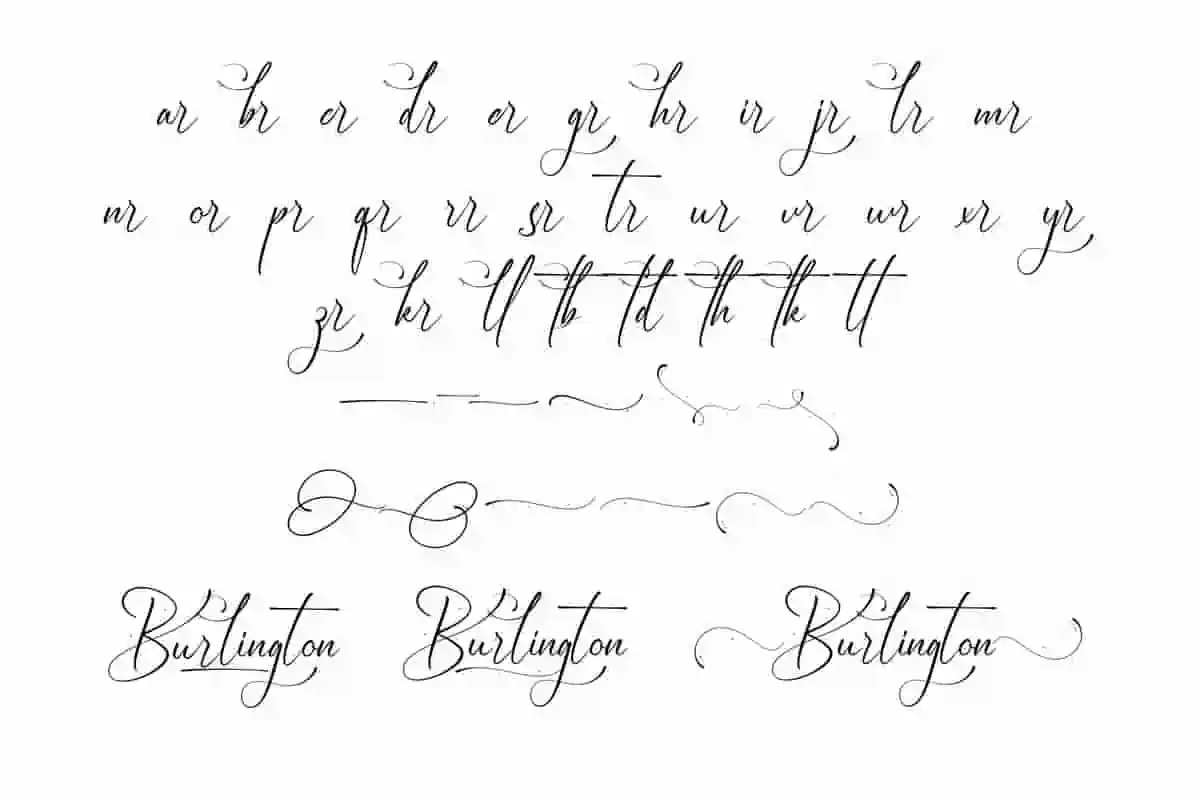 ar br cr dr er gr hr ir jr lr mr
nr or pr qr rr sr tr ur vr wr xr yr
zr kr ll tb td th tk tt
Burlington Burlington Burlington